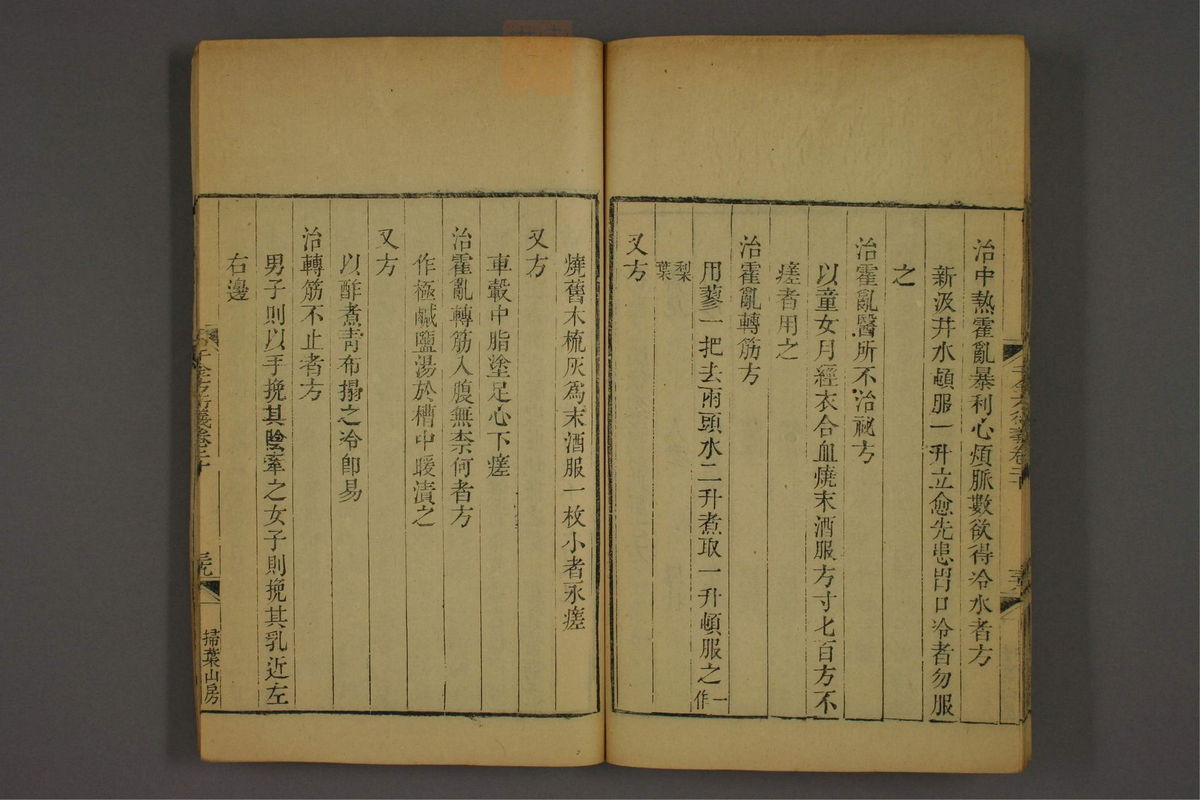 治中熱霍亂暴利心煩脈數欲得冷水者方
新汲井水頓服一升立愈先患胃口冷者勿服
之
治霍亂醫所不治祕方
以童女月經衣合血燒末酒服方寸匕百方不
瘥者用之
治霍亂轉筋方
用蓼一把去兩頭水二升煮取一升頓服之一作
梨葉
又方
燒舊木梳灰為末酒服一枚小者永瘥
又方
車轂中脂塗足心下瘥
治霍亂轉筋入腹無柰何者方
作極鹹鹽湯於槽中暖漬之
又方
以酢煮青布搨之冷即易
治轉筋不止者方
男子則以手挽其陰牽之女子則挽其乳近左
右邊
千金方衍義卷二十
三十九
掃葉山房